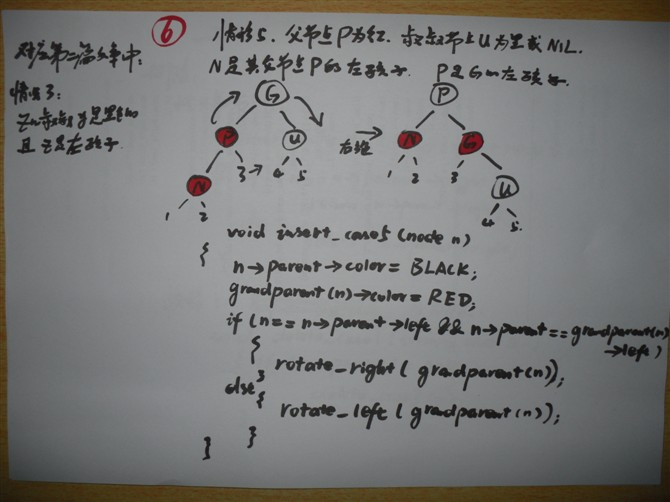 对应第二篇文章中:
情况3:
z的叔叔y是黑色的
且z是左孩子.
6
情形5. 父节点P为红. 叔叔节点U为黑或NIL.
N是其父节点P的左孩子. P是G的左孩子.
G
P
U
N
3
4 5
1 2
右旋
P
N G
1 2 3
U
4 5
void insert_case5 (node n)
{
n→parent→color = BLACK;
grandparent(n)→color = RED;
if (n == n→parent→left && n→parent == grandparent(n)
→left)
{
rotate_right( gradparent(n));
}
else
{
rotate_left ( gradparent(n));
}
}